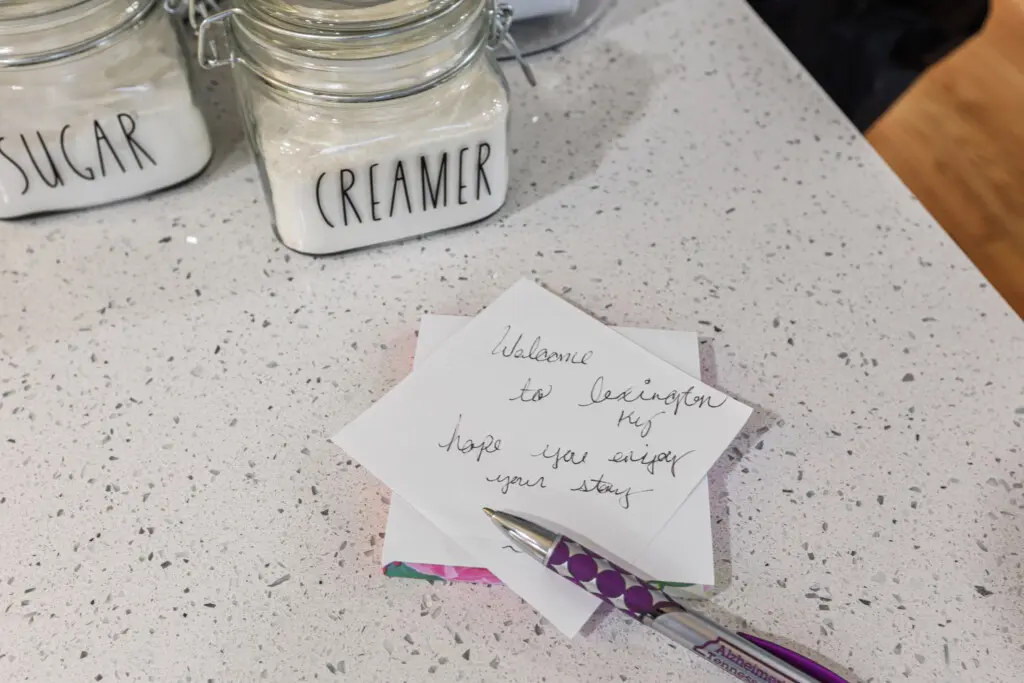 SUGAR
CREAMER
Welcome
to lexington
Ky
hope you enjoy
your stay
Alzheimer
Tennessee